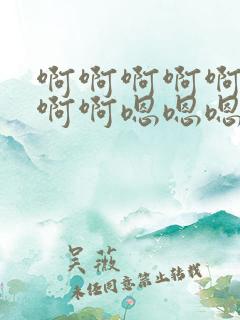 啊啊啊啊啊
啊啊嗯嗯嗯
吴薇
未经同意禁止转载